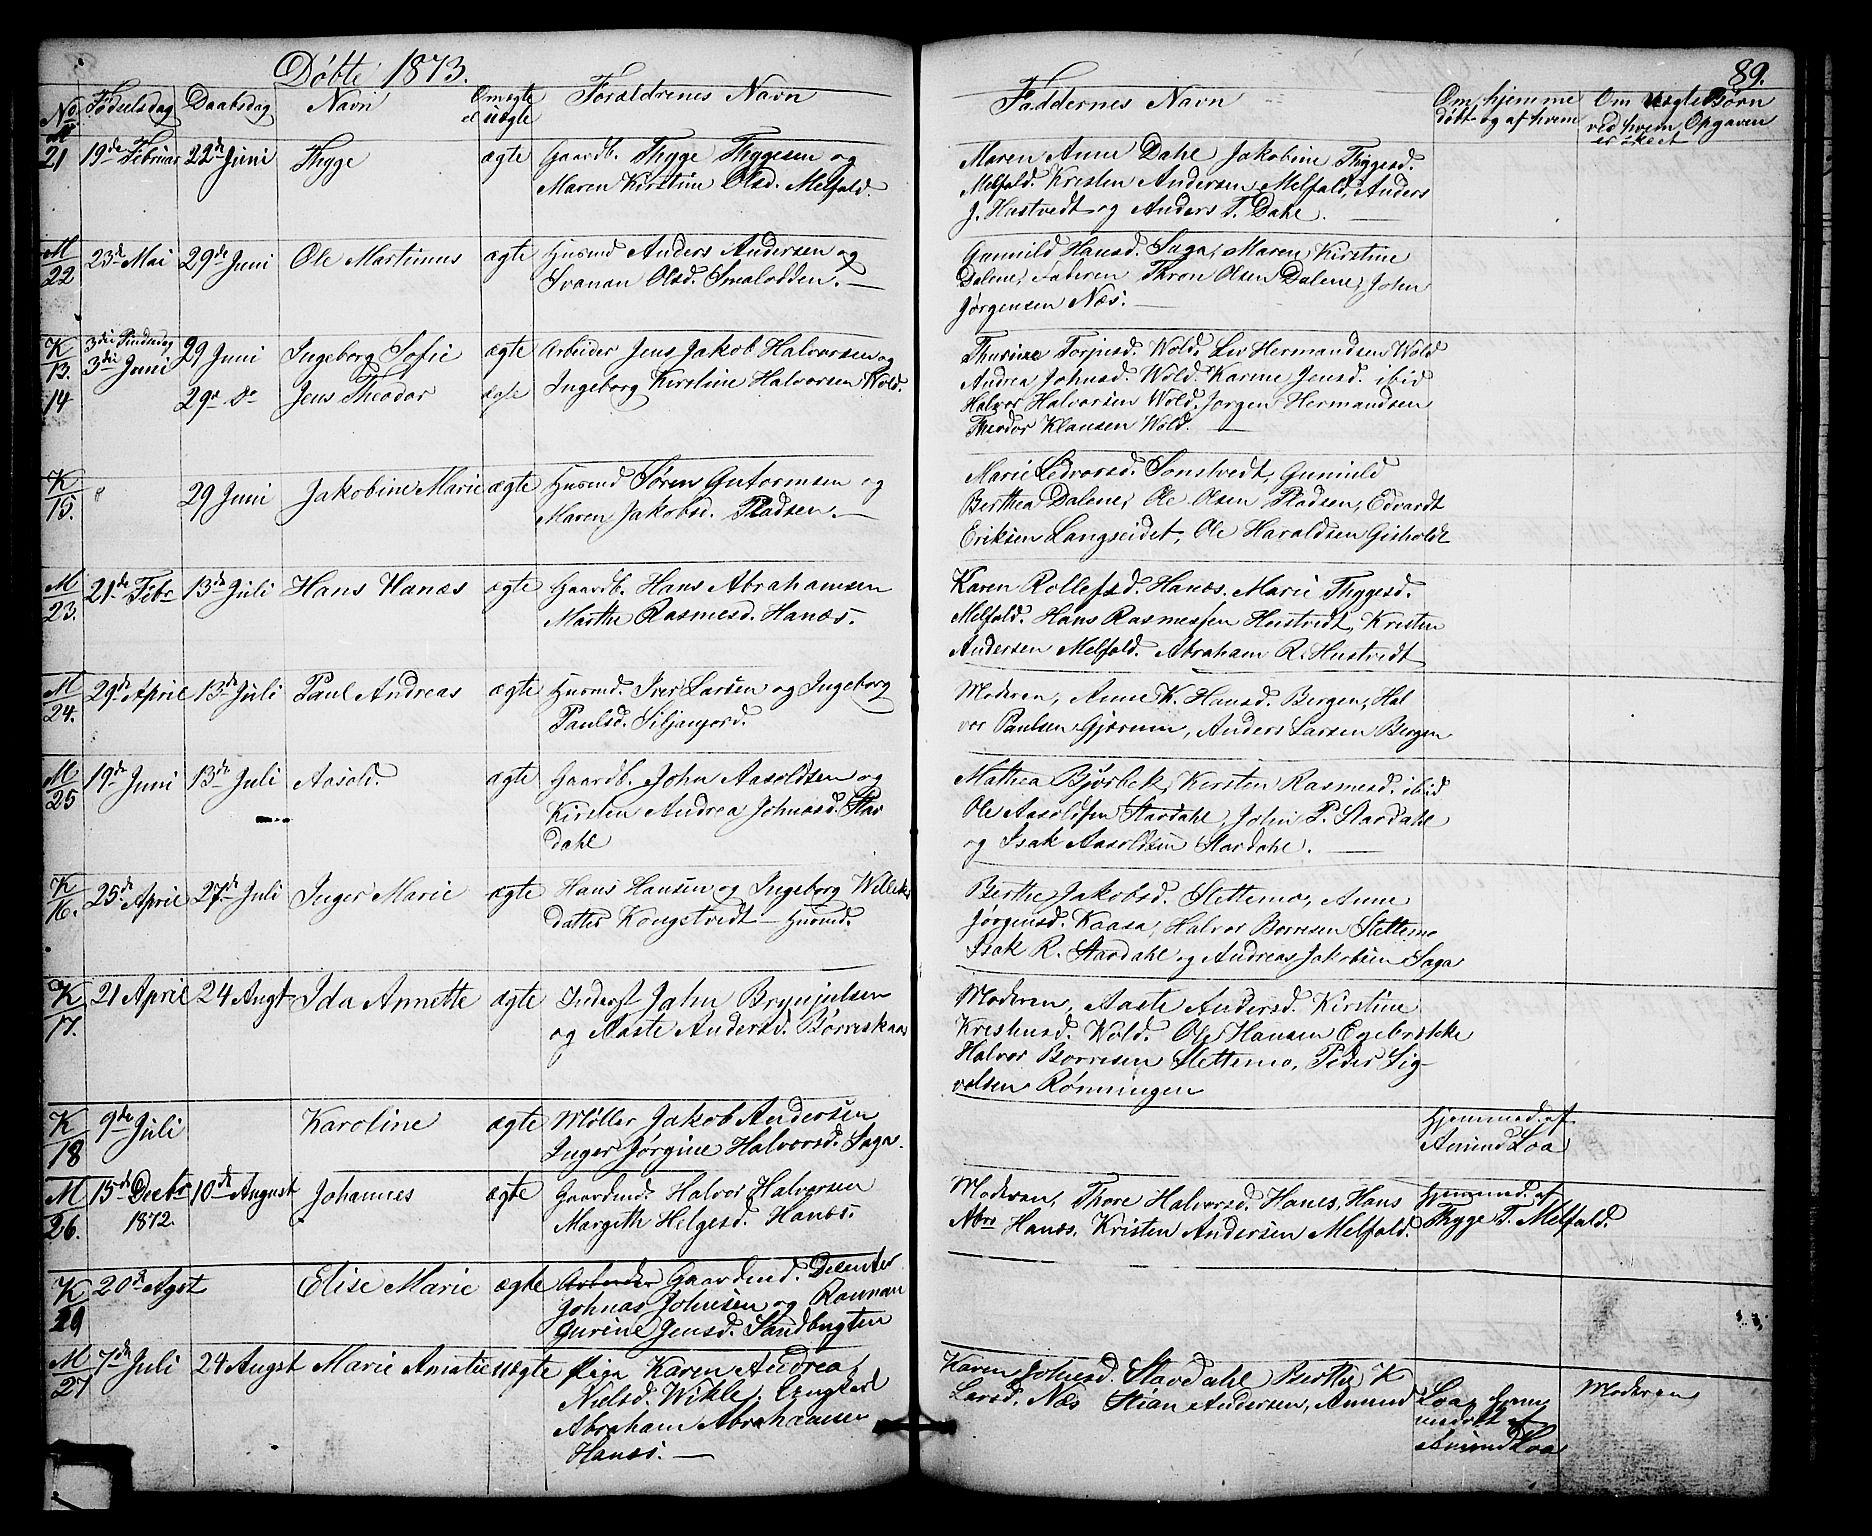 Døbte 1873.
89.
No Fødselsdag Daabsdag Navn Om ægte el uægte Forældrenes Navn Faddernes Navn Om hjemmedøbt og af hvem Om uægte Børn ved hvem Opgaven er skeet
M 21 19de Februar 22de Juni Thyge ægte Gaardb. Thyge Thygesen og
Maren Kirstine Olsd. Melfald.
Maren Anne Dahl Jakobine Thygesd.
Melfald. Kristen Andersen Melfald, Anders
J. Hustvedt og Anders T. Dahl.
M 22 23de Mai 29de Juni Ole Martinus ægte Husmd Anders Andersen og
Svanan Olsd. Smalodden.
Gunnild Hansd. Saga, Maren Kirstine
Dalene, Faderen Thron Olsen Dalene, John
Jørgensen Næs.
K 13. 3die Pindsedag 3die Juni 29 Juni Ingeborg Sofie ægte Arbeider Jens Jakob Halvorsen og
14 29de do Jens Theodor ægte Ingeborg Kirstine Halvorsen Wold.
Thurine Torjusd. Wold. Lev Hermandsen Wold
Andrea Johnsd. Wold. Karine Jensd. ibid
Halvor Halvorsen Wold. Jørgen Hermandsen
Theodor Klausen Wold.
K 15. 29 Juni Jakobine Marie ægte Husmd Søren Gutormsen og
Maren Jakobsd. Pladsen.
Marie Ledvorsd. Sonstvedt, Gunnild
Berthea Dalene, Ole Olsen Pladsen, Edvardt
Eriksen Langseidet, Ole Haraldsen Gisholdt
M 23. 21de Febr 13de Juli Hans Hanæs ægte Gaardb. Hans Abrahamsen
Marthe Rasmesd. Hanæs.
Karen Rollefsd. Hanæs. Marie Thygesd.
Melfald. Hans Rasmessen Hustvedt, Kristen
Andersen Melfald. Abraham R. Hustvedt
M 24. 29de April 13de Juli Paul Andreas ægte Husmd. Iver Larsen og Ingeborg
Paulsd. Siljanjord.
Moderen, Anne K. Hansd. Bergen, Hal
vor Paulsen Gjærum, Anders Larsen Bergen
M 25 19de Juni 13de Juli Aasold. ægte Gaardb. John Aasoldsen og
Kirsten Andrea Johnasd. Stav
dahl
Mathea Bjørbek, Kirsten Rasmesd. ibid
Ole Aasoldsen Stavdahl, John P. Stavdahl
og Isak Aasoldsen Stavdahl.
K 16. 25de April 27de Juli Inger Marie ægte Hans Hansen og Ingeborg Willeks
datter Kongstvedt – Husmd.
Berthe Jakobsd. Slettemo, Anne
Jørgensd. Kaasa, Halvor Børresen Slettemo
Isak R. Stavdahl og Andreas Jakobsen Saga
K 17. 21 April 24 Augt Ida Annette ægte Inderst John Brynjulsen
og Aaste Andersd. Børreskaas
Moderen, Aaste Andersd. Kirstine
Kristensd. Wold. Ole Hansen Egebrække
Halvor Børresen Slettemo, Peder Sig-
valsen Rønningen
K 18 9de Juli Karoline ægte Møller Jakob Andersen
Inger Jørgine Halvorsd. Saga.
Hjemmed. af
Amund Loa
M 26. 15de Decbr 1872. 10de August Johannes ægte Gaardmd. Halvor Halvorsen
Margith Helgesd. Hanæs.
Moderen, Thore Halvorsd. Hanes, Hans
Abra Hanæs. Kristen Andersen Melfald.
Hjemmed. af
Thyge T. Melfald.
K 20de Agst Elise Marie ægte Arbeider Gaardmd. Disenter
Johnas Johnsen og Raunan
Gurine Jensd. Sandbugten
M 27 7de Juli 24 Augst Marie Amatie uægte Pige Karen Andrea
Nielsd. Wikle, Ungkarl
Abraham Abrahamsen
Hanæs.
Karen Johnsd. Stavdahl Berthe K
Larsd. Næs Stian Andersen, Amund
Loa, hjem
medøbt af
Amund Loa
Moderen